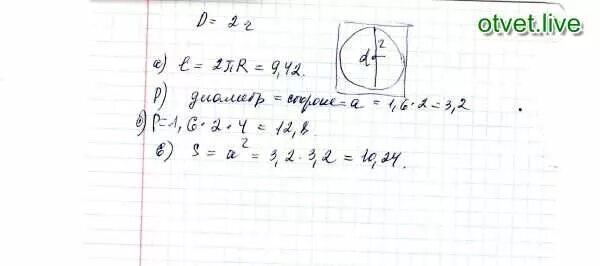 D = 2 r
otvet.live
2
d
а) ℓ = 2πR = 9,42.
р) диаметр = стороне = a = 1,6·2 = 3,2
б) P = 1,6·2·4 = 12,8.
в) S = a² = 3,2·3,2 = 10,24.